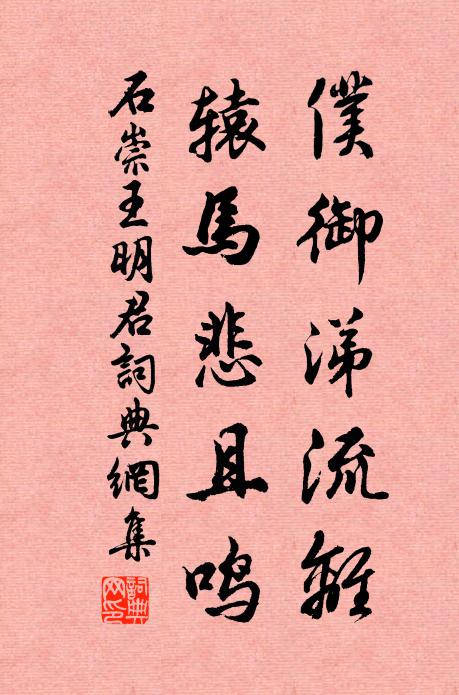 僕御涕流離
辕馬悲且鸣
石崇王明君詞典網集
詞典网印